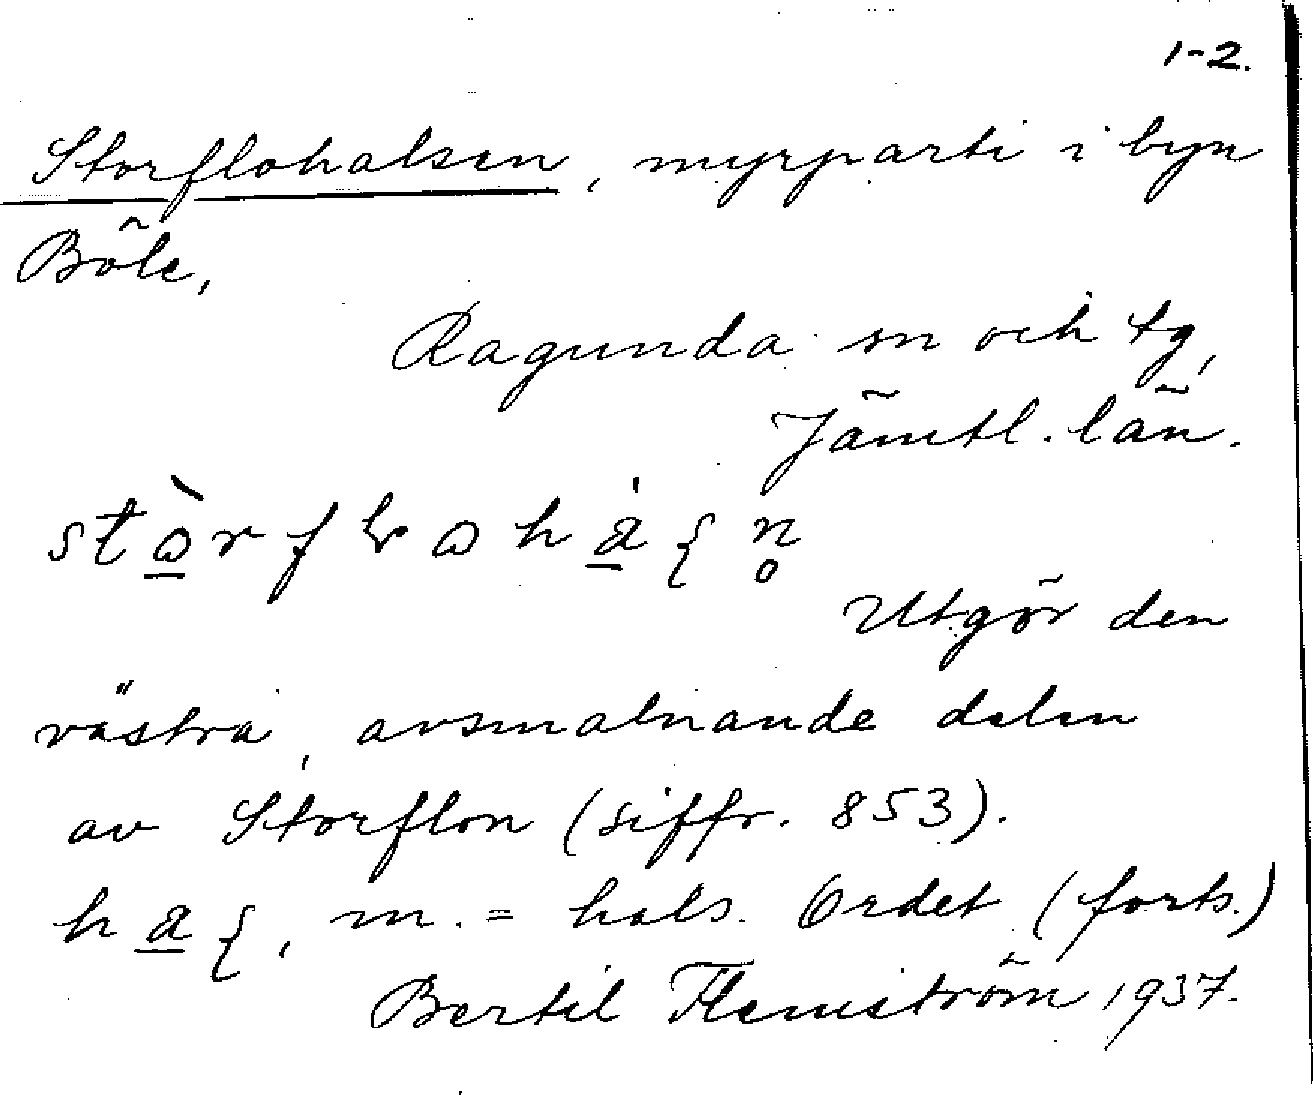 1-2.
Storflohalsen, myrparti i byn
Böle,
Ragunda sn och tg,
Jämtl. län.
Utgör den
västra, avsmalnande delen
av Storflon (siffr. 853).
m. = hals. Ordet (forts.)
Bertil Flemström 1937.